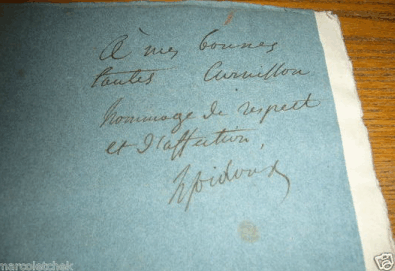 A mes bonnes
tantes
hommage de respect
et d'affection,
marcoletchek